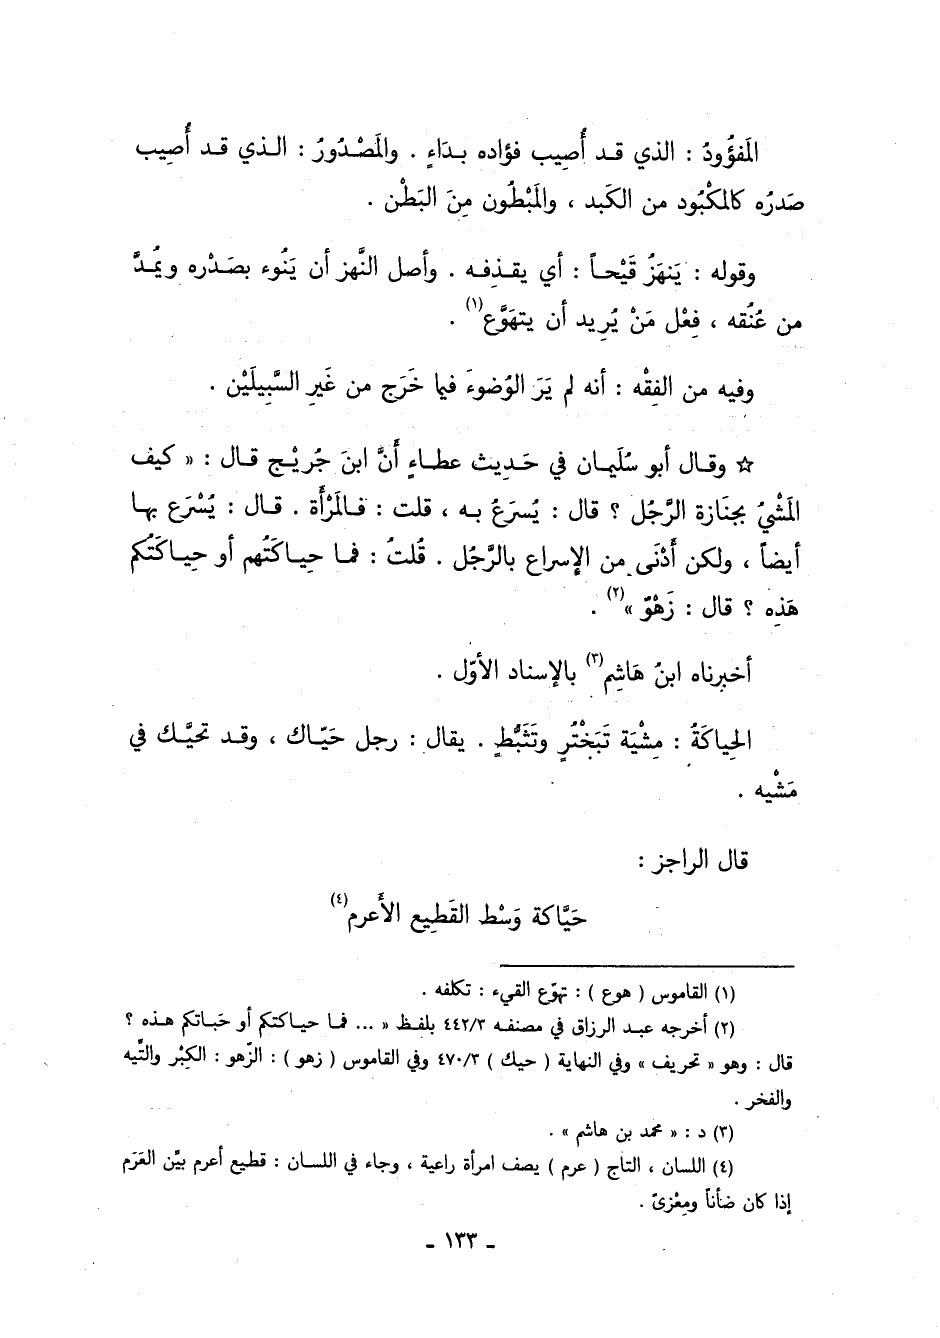 المَفؤُودُ : الذي قـد أُصِيب فؤاده بـدَاءٍ . والمَصْدُورُ : الـذي قـد أُصِيب
صَدرُه كالمكْبُود من الكَبد ، والمَبْطُون مِنَ البَطْن .
وقوله : يَنهَزُ قَيْحـاً : أي يقـذِفـه . وأصل النَّهز أن يَنُوء بصَـدْره ويمُـدَّ
من عُنُقه ، فِعْل مَنْ يُرِيد أن يتهَوَّع(١) .
وفيه من الفِقْه : أنه لم يَرَ الوُضوءَ فيما خَرَج من غَيرِ السَّبِيلَيْن .
☆ وقـال أبو سُلَيمان في حَدِيث عطـاءٍ أَنَّ ابنَ جُريْـج قـال : « كيف
المَشْيُ بجنَازة الرَّجُل ؟ قال : يُسرَعُ بـه ، قلت : فـالمَرْأَة . قـال : يُسْرَع بهـا
أيضاً ، ولكن أَدْنَى من الإسراع بالرَّجُل . قُلتُ : فمـا حِيـاكَتُهم أو حِيـاكَتُكم
هَذِه ؟ قال : زَهْوٌ »(٢) .
أخبرناه ابنُ هَاشِم(٣) بالإسناد الأوّل .
الحِياكَةُ : مِشْيَة تَبَخْتُرٍ وتَثَبُّطٍ . يقال : رجل حَيّـاك ، وقـد تحيَّـك في
مَشْيِه .
قال الراجز :
حَيَّاكة وَسْط القَطِيع الأَعرم(٤)
(١) القاموس ( هوع ) : تهوّع القيء : تكلفه .
(٢) أخرجه عبد الرزاق في مصنفه ٤٤٢/٣ بلفظ « ... فما حياكتكم أو حَباتكم هذه ؟
قال : وهو « تحريف » وفي النهاية ( حيك ) ٤٧٠/٣ وفي القاموس ( زهو ) : الزّهو : الكِبْر والتِّيه
والفخر .
(٣) د : « محمد بن هاشم » .
(٤) اللسان ، التاج ( عرم ) يصف امرأة راعية ، وجاء في اللسان : قطيع أعرم بيّن العَرَم
إذا كان ضأناً ومِعْزىً .
ـ ١٣٣ ـ